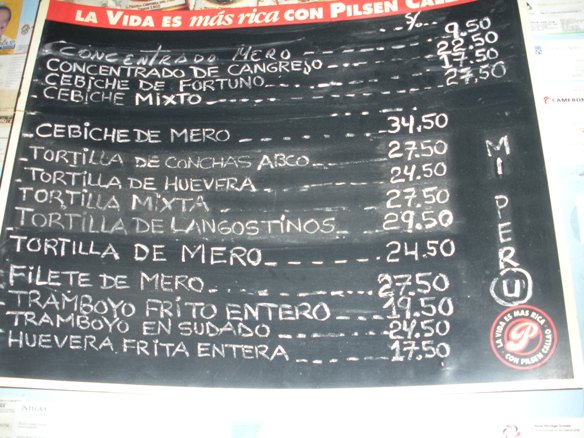 LA VIDA ES más rica CON PILSEN CALLAO
S/.
CONCENTRADO MERO 9.50
CONCENTRADO DE CANGREJO 22.50
CEBICHE DE FORTUNO 17.50
CEBICHE MIXTO 27.50
CEBICHE DE MERO 34.50
TORTILLA DE CONCHAS ABCO 27.50
TORTILLA DE HUEVERA 24.50
TORTILLA MIXTA 27.50
TORTILLA DE LANGOSTINOS 29.50
TORTILLA DE MERO 24.50
FILETE DE MERO 27.50
TRAMBOYO FRITO ENTERO 19.50
TRAMBOYO EN SUDADO 24.50
HUEVERA FRITA ENTERA 17.50
MI PERU
LA VIDA ES MAS RICA
P
CON PILSEN CALLAO